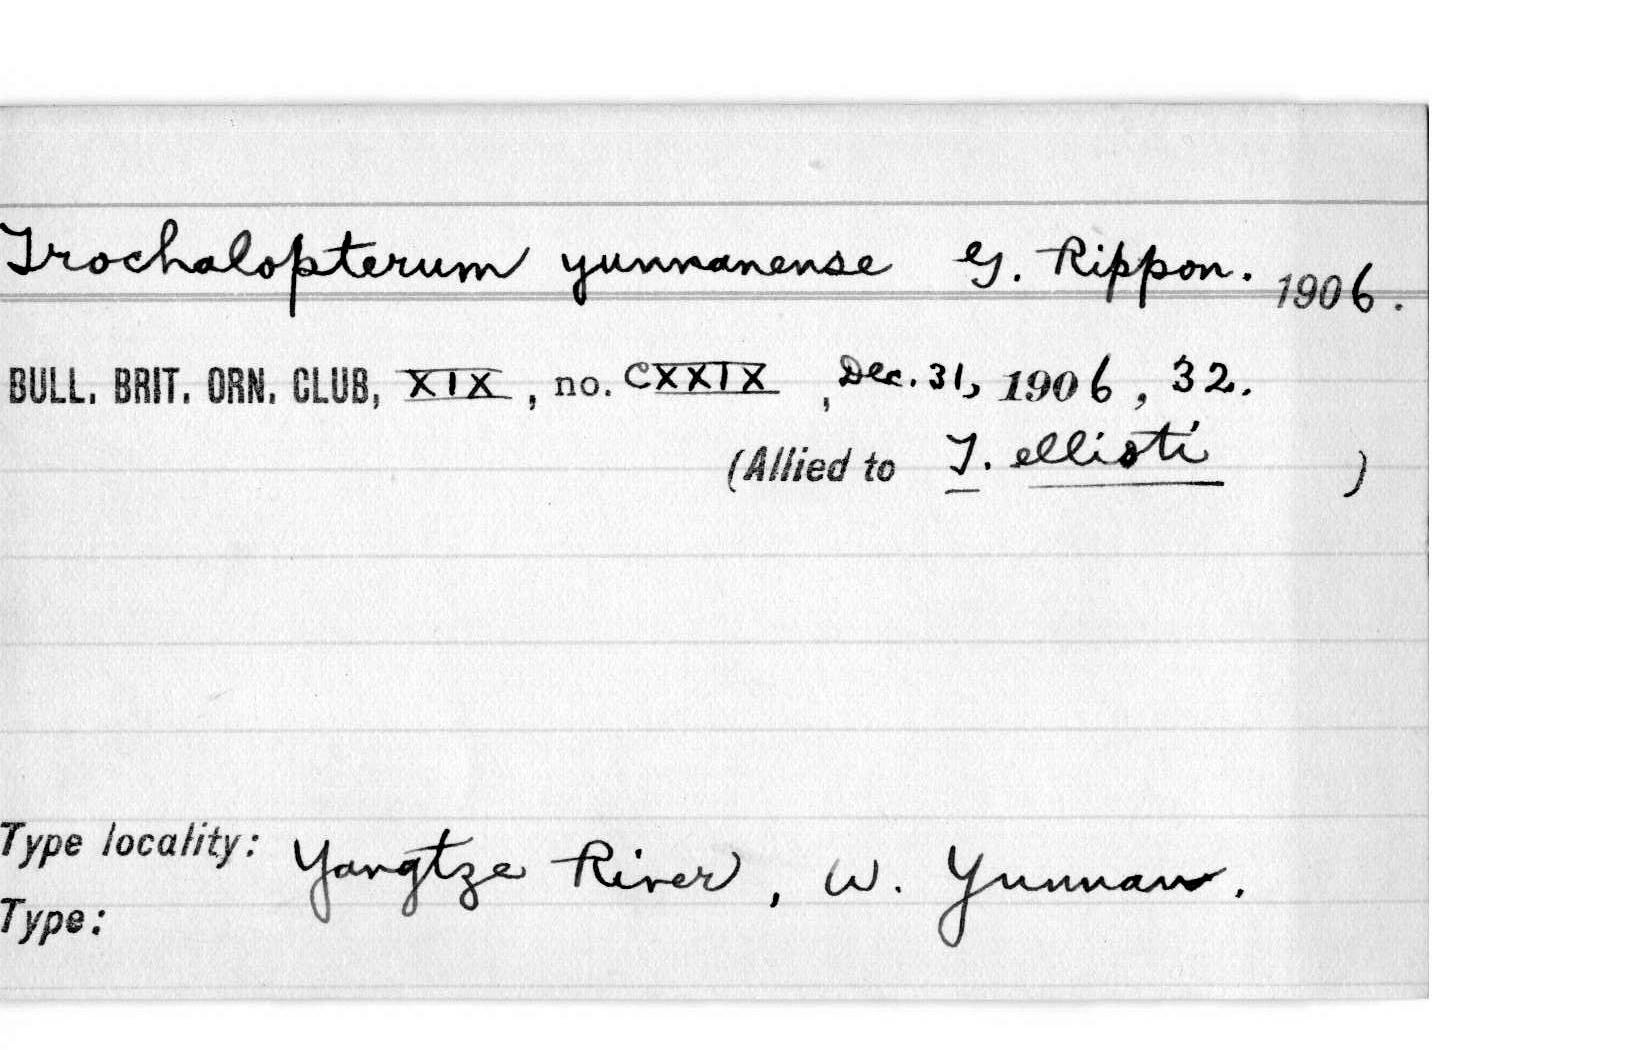 Trochalopterum yunnanense G. Rippon. 1906.
BULL. BRIT. ORN. CLUB, XIX, no. CXXIX, Dec. 31, 1906, 32.
(Allied to T. ellioti )
Type locality: Yangtze River, W. Yunnan.
Type: